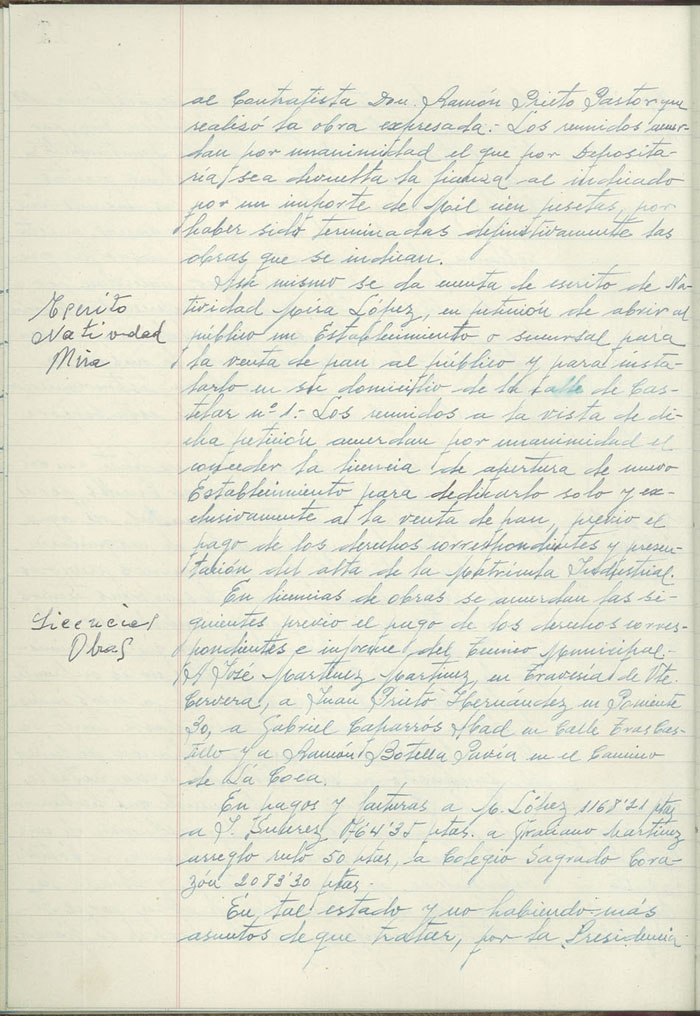 al Contratista Don. Ramón Prieto Pastor que
realizó la obra expresada:- Los reunidos acuer-
dan por unanimidad el que por Deposita-
ría sea devuelta la fianza al indicado
por un importe de Mil cien pesetas, por
haber sido terminadas definitivamente las
obras que se indican.
Escrito
Natividad
Mira
Así mismo se da cuenta de escrito de Na-
tividad Mira López, en petición de abrir al
público un Establecimiento o sucursal para
la venta de pan al público y para insta-
larlo en su domicilio de la calle de Cas-
telar nº 1:- Los reunidos a la vista de di-
cha petición acuerdan por unanimidad el
conceder la licencia de apertura de nuevo
Establecimiento para dedicarlo solo y ex-
clusivamente a la venta de pan, previo el
pago de los derechos correspondientes y presen-
tación del alta de la Matrícula Industrial.
Licencias
Obras
En licencias de obras se acuerdan las si-
guientes previo el pago de los derechos corres-
pondientes e informe del Técnico Municipal:-
A José Martínez Martínez, en Travesía de Vte.
Cervera, a Juan Prieto Hernández en Poniente
30, a Gabriel Caparrós Abad en Calle Tras Cas-
tillo y a Ramón Botella Pavía en el Camino
de La Coca.
En pagos y facturas a M. López 1168'21 ptas
a J. 64'35 ptas. a Graciano Martínez
arreglo 50 ptas, la Colegio Sagrado Cora-
zón 2083'30 ptas.
En tal estado y no habiendo más
asuntos de que tratar, por la Presidencia